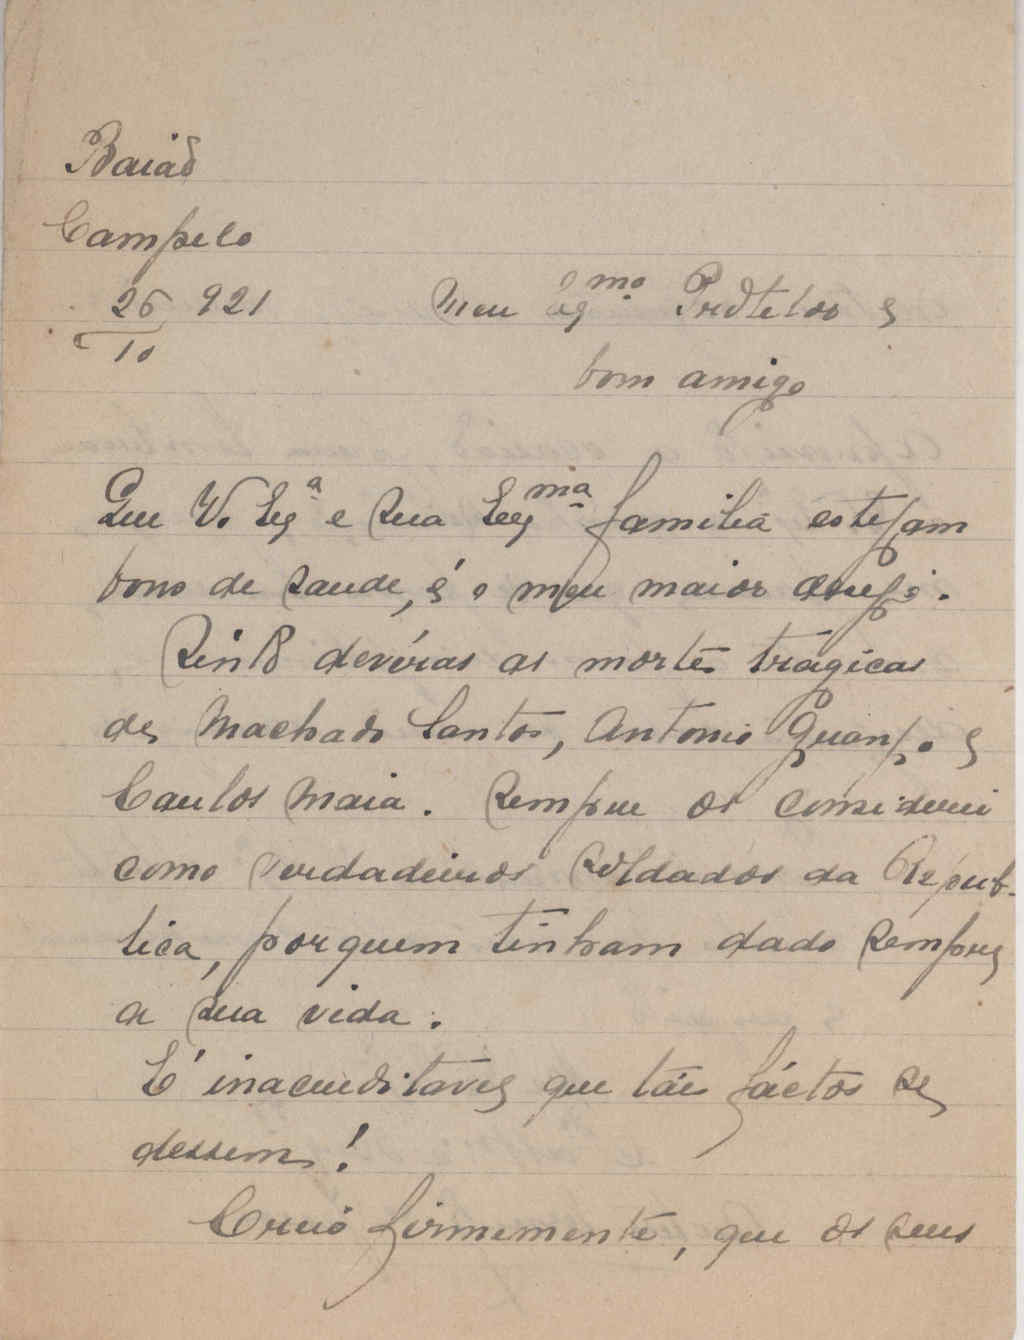 Baião
Campelo
26 921
10
Meu Exmo. Protetor e
bom amigo
Que V. Exª e sua Exma. familia estejam
bons de saude, é o meu maior desejo.
Sinto devéras as mortes trágicas
de Machado Santos, Antonio Granjo e
Carlos Maia. Sempre os considerei
como verdadeiros soldados da Répub-
lica, por quem tinham dado sempre
a sua vida.
É inacreditável que tais fáctos se
dessem!
Creio firmemente, que os seus